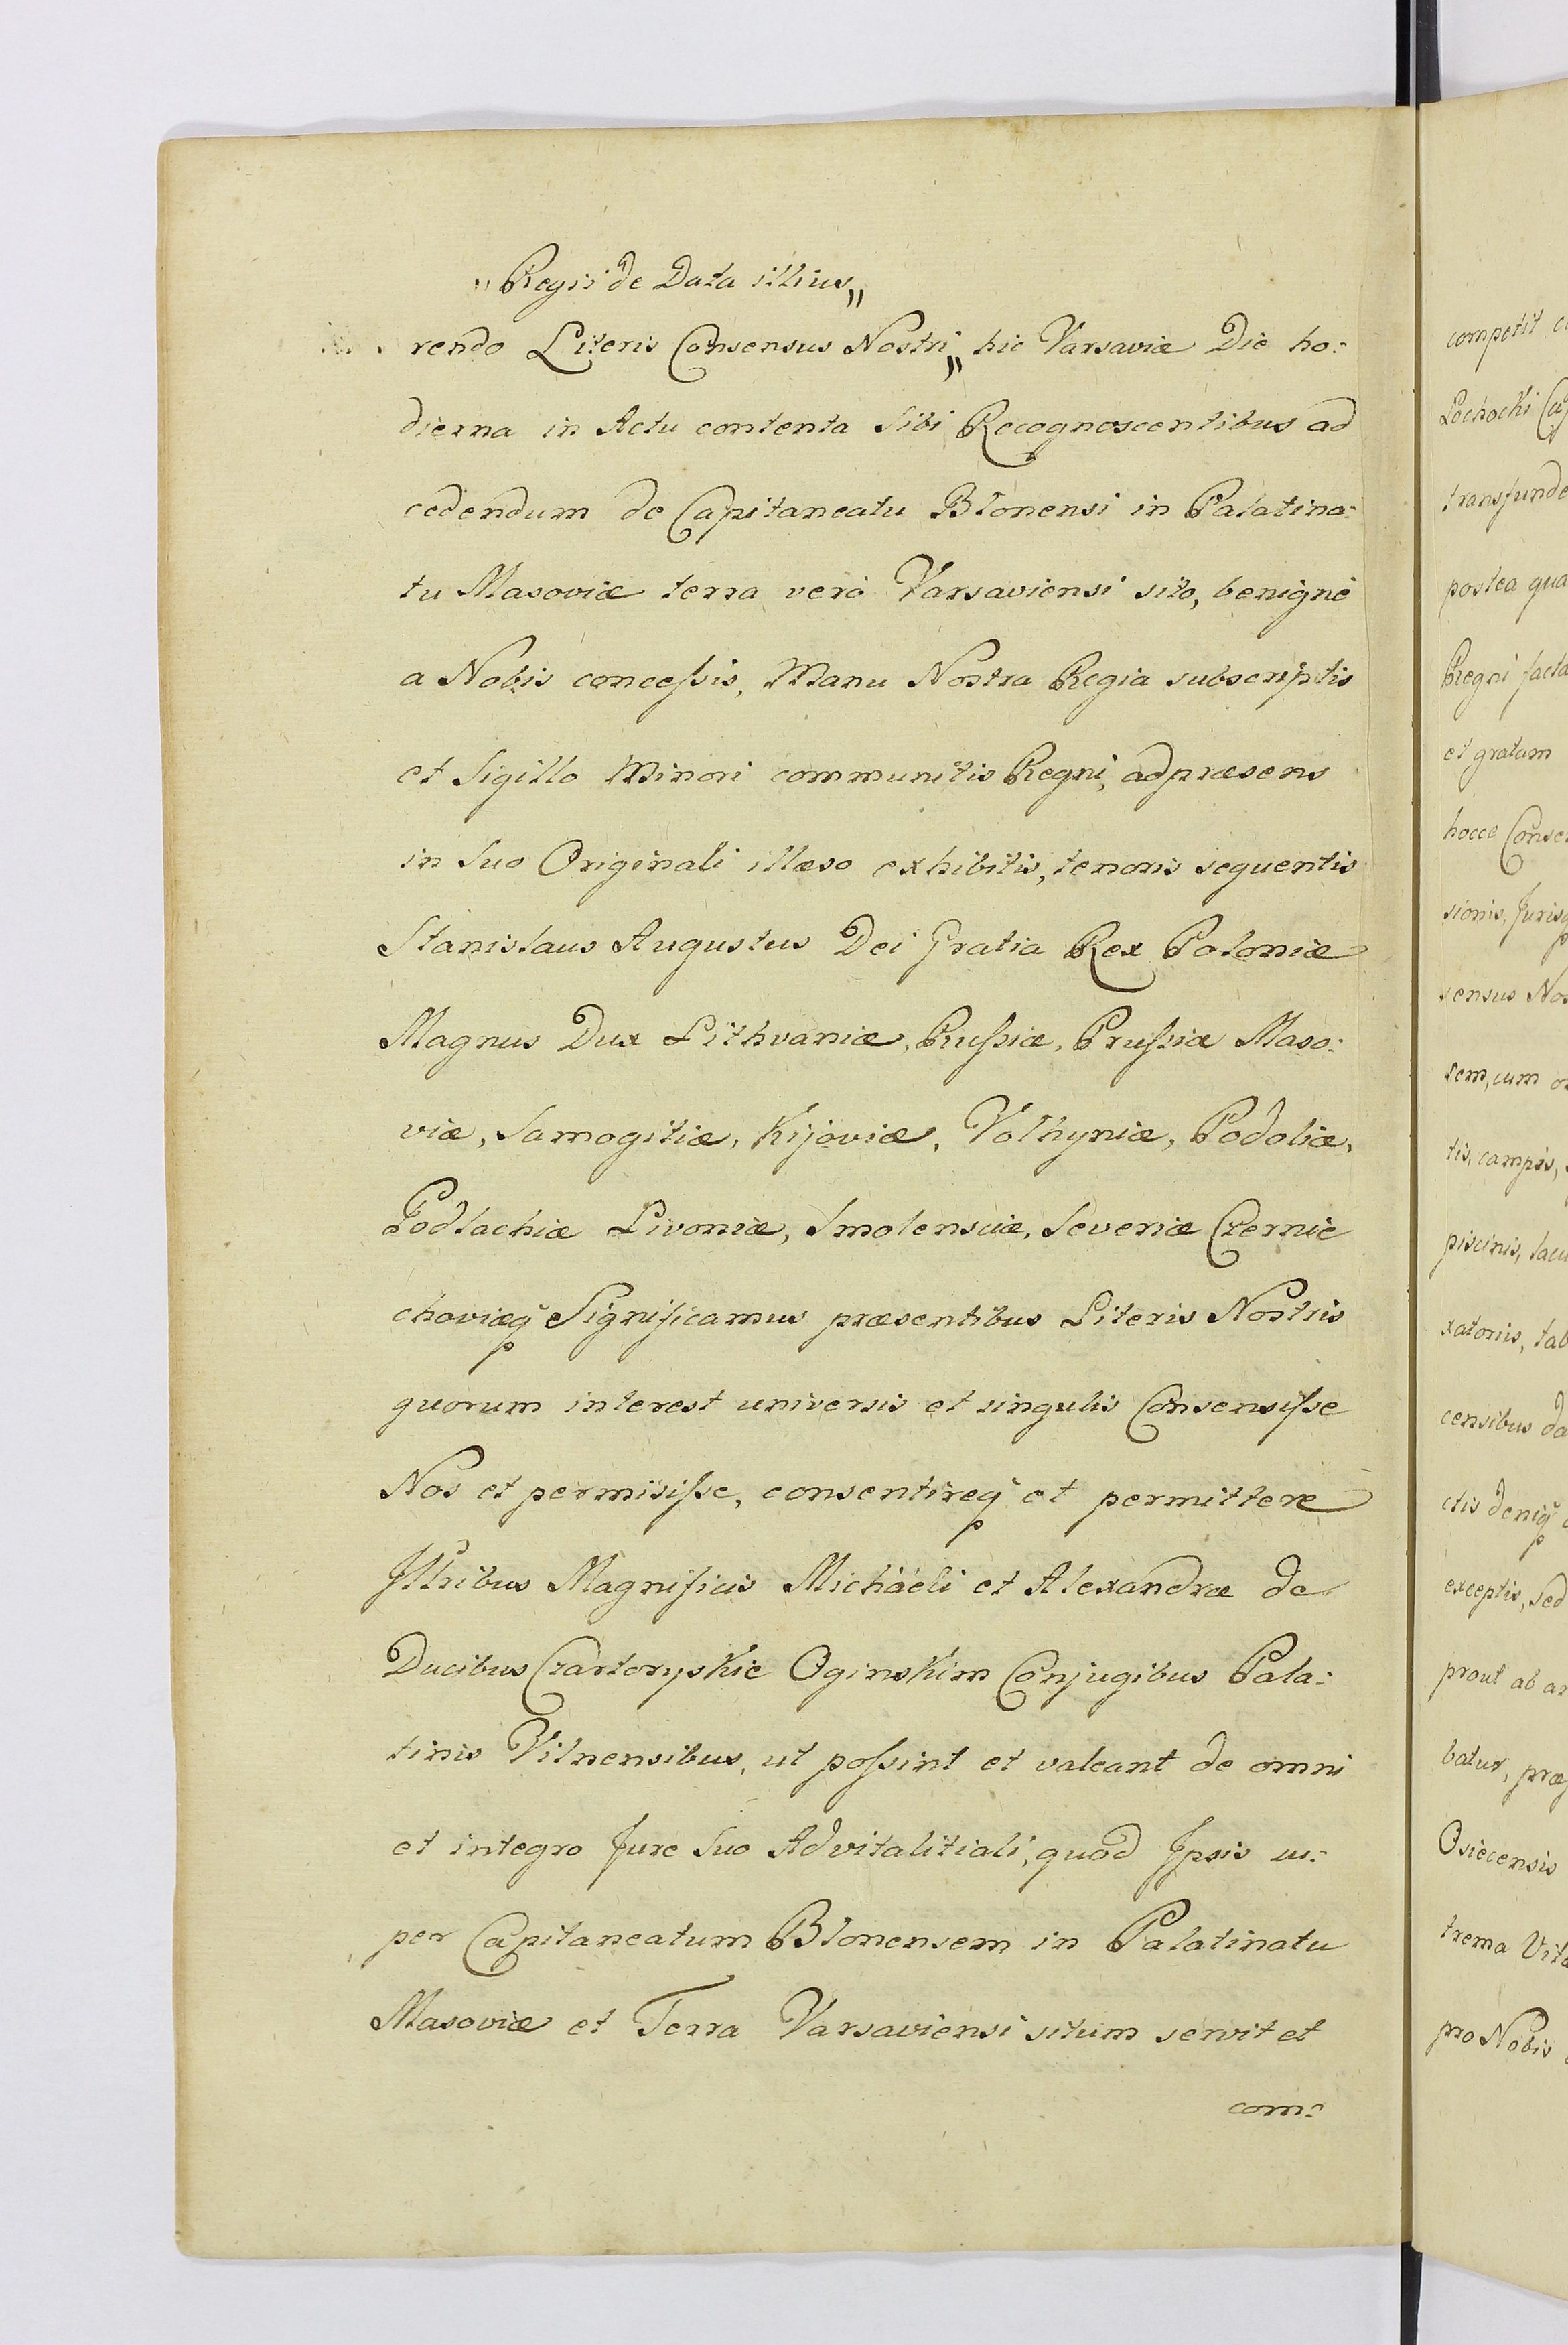 „Regii de Data illius„
rendo Literis Consensus Nostri„ hic Varsaviæ Die ho:
dierna in Actu contenta Sibi Recognoscentibus ad
cedendum de Capitaneatu Blonensi in Palatina:
tu Masoviæ terra verò Varsaviensi sito, benignè
a Nobis concessis, Manu Nostra Regia subscriptis
et Sigillo Minori communitis Regni, adpræsens
in Suo Originali illæso exhibitis, tenoris sequentis
Stanislaus Augustus Dei Gratia Rex Poloniæ
Magnus Dux Lithvaniæ, Russiæ, Prussiæ Maso:
viæ, Samogitiæ, Kijoviæ, Volhyniæ, Podoliæ,
Podlachiæ Livoniæ, Smolensciæ, Severiæ Czernie
choviæq Significamus præsentibus Literis Nostris
quorum interest universis et singulis Consensisse
Nos et permisisse, consentireq et permittere
Jllribus Magnificis Michaeli et Alexandræ de
Ducibus Czartoryskie Oginskim Conjugibus Pala:
tinis Vilnensibus, ut possint et valeant de omni
et integro Jure Suo Advitalitiali, quod Jpsis su:
per Capitaneatum Blonensem in Palatinatu
Masoviæ et Terra Varsaviensi situm servit et
com:
competit
Lochocki
transfunde
postea qua
Regni facta
et gratam
hocce Conse
sionis, Juris
sensus Nos
sem, cum
tis, campis,
piscinis, lacu
xatoriis, tab
censibus da
ctis deniq
exceptis, sed
prout ab ar
batur, præ
Osiecensis
trema Vitæ
pro Nobis